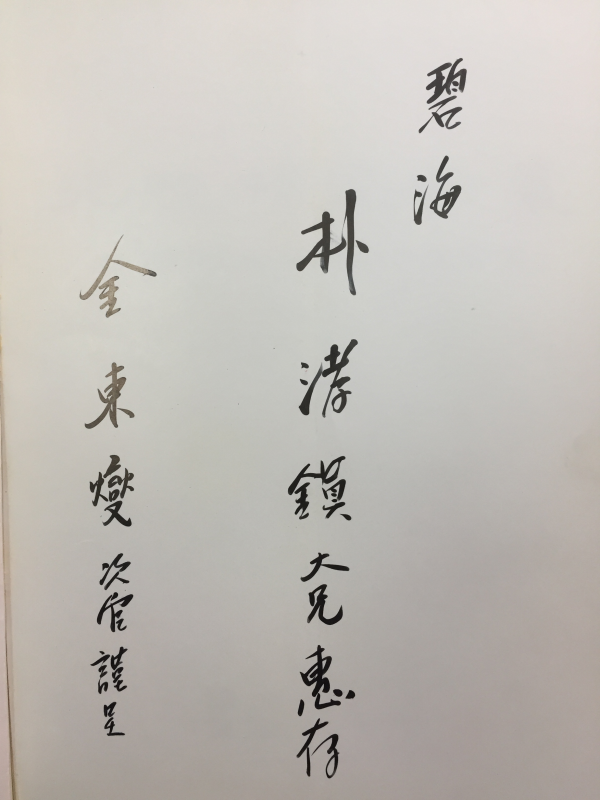 碧海
朴涍鎭大兄惠存
金東燮次官謹呈